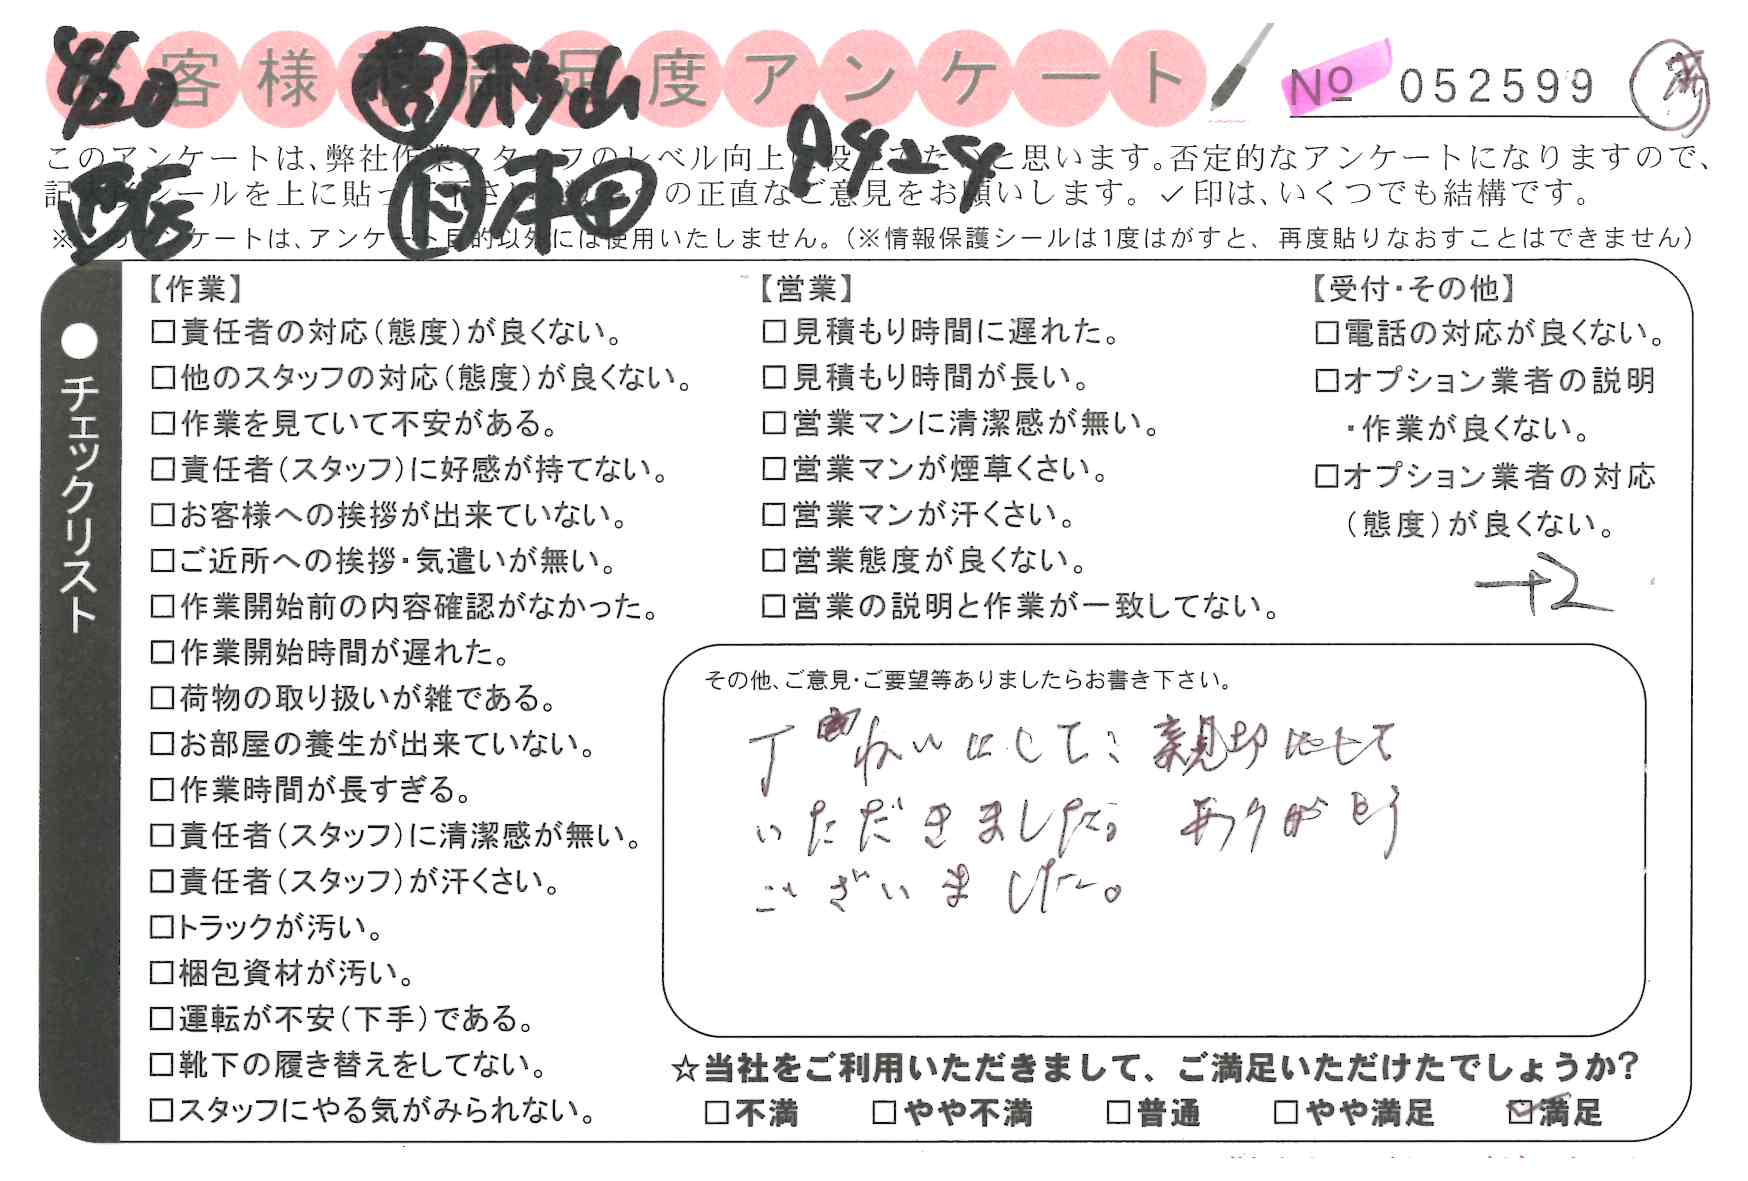 4/20 客様 営 杉山 足度アンケート No 052599 済
このアンケートは、弊社作業スタッフのレベル向上に役立てたいと思います。否定的なアンケートになりますので、
シールを上に貼っ の正直なご意見をお願いします。✓印は、いくつでも結構です。
ト 本田 94254
※このアンケートは、アンケート目的以外には使用いたしません。(※情報保護シールは1度はがすと、再度貼りなおすことはできません)
●チェックリスト
【作業】
□責任者の対応(態度)が良くない。
□他のスタッフの対応(態度)が良くない。
□作業を見ていて不安がある。
□責任者(スタッフ)に好感が持てない。
□お客様への挨拶が出来ていない。
□ご近所への挨拶・気遣いが無い。
□作業開始前の内容確認がなかった。
□作業開始時間が遅れた。
□荷物の取り扱いが雑である。
□お部屋の養生が出来ていない。
□作業時間が長すぎる。
□責任者(スタッフ)に清潔感が無い。
□責任者(スタッフ)が汗くさい。
□トラックが汚い。
□梱包資材が汚い。
□運転が不安(下手)である。
□靴下の履き替えをしてない。
□スタッフにやる気がみられない。
【営業】
□見積もり時間に遅れた。
□見積もり時間が長い。
□営業マンに清潔感が無い。
□営業マンが煙草くさい。
□営業マンが汗くさい。
□営業態度が良くない。
□営業の説明と作業が一致してない。
【受付・その他】
□電話の対応が良くない。
□オプション業者の説明
・作業が良くない。
□オプション業者の対応
(態度)が良くない。
→2
その他、ご意見・ご要望等ありましたらお書き下さい。
丁ねいにして、親切にして
いただきました。ありがとう
ございました。
☆当社をご利用いただきまして、ご満足いただけたでしょうか?
□不満 □やや不満 □普通 □やや満足 ☑満足